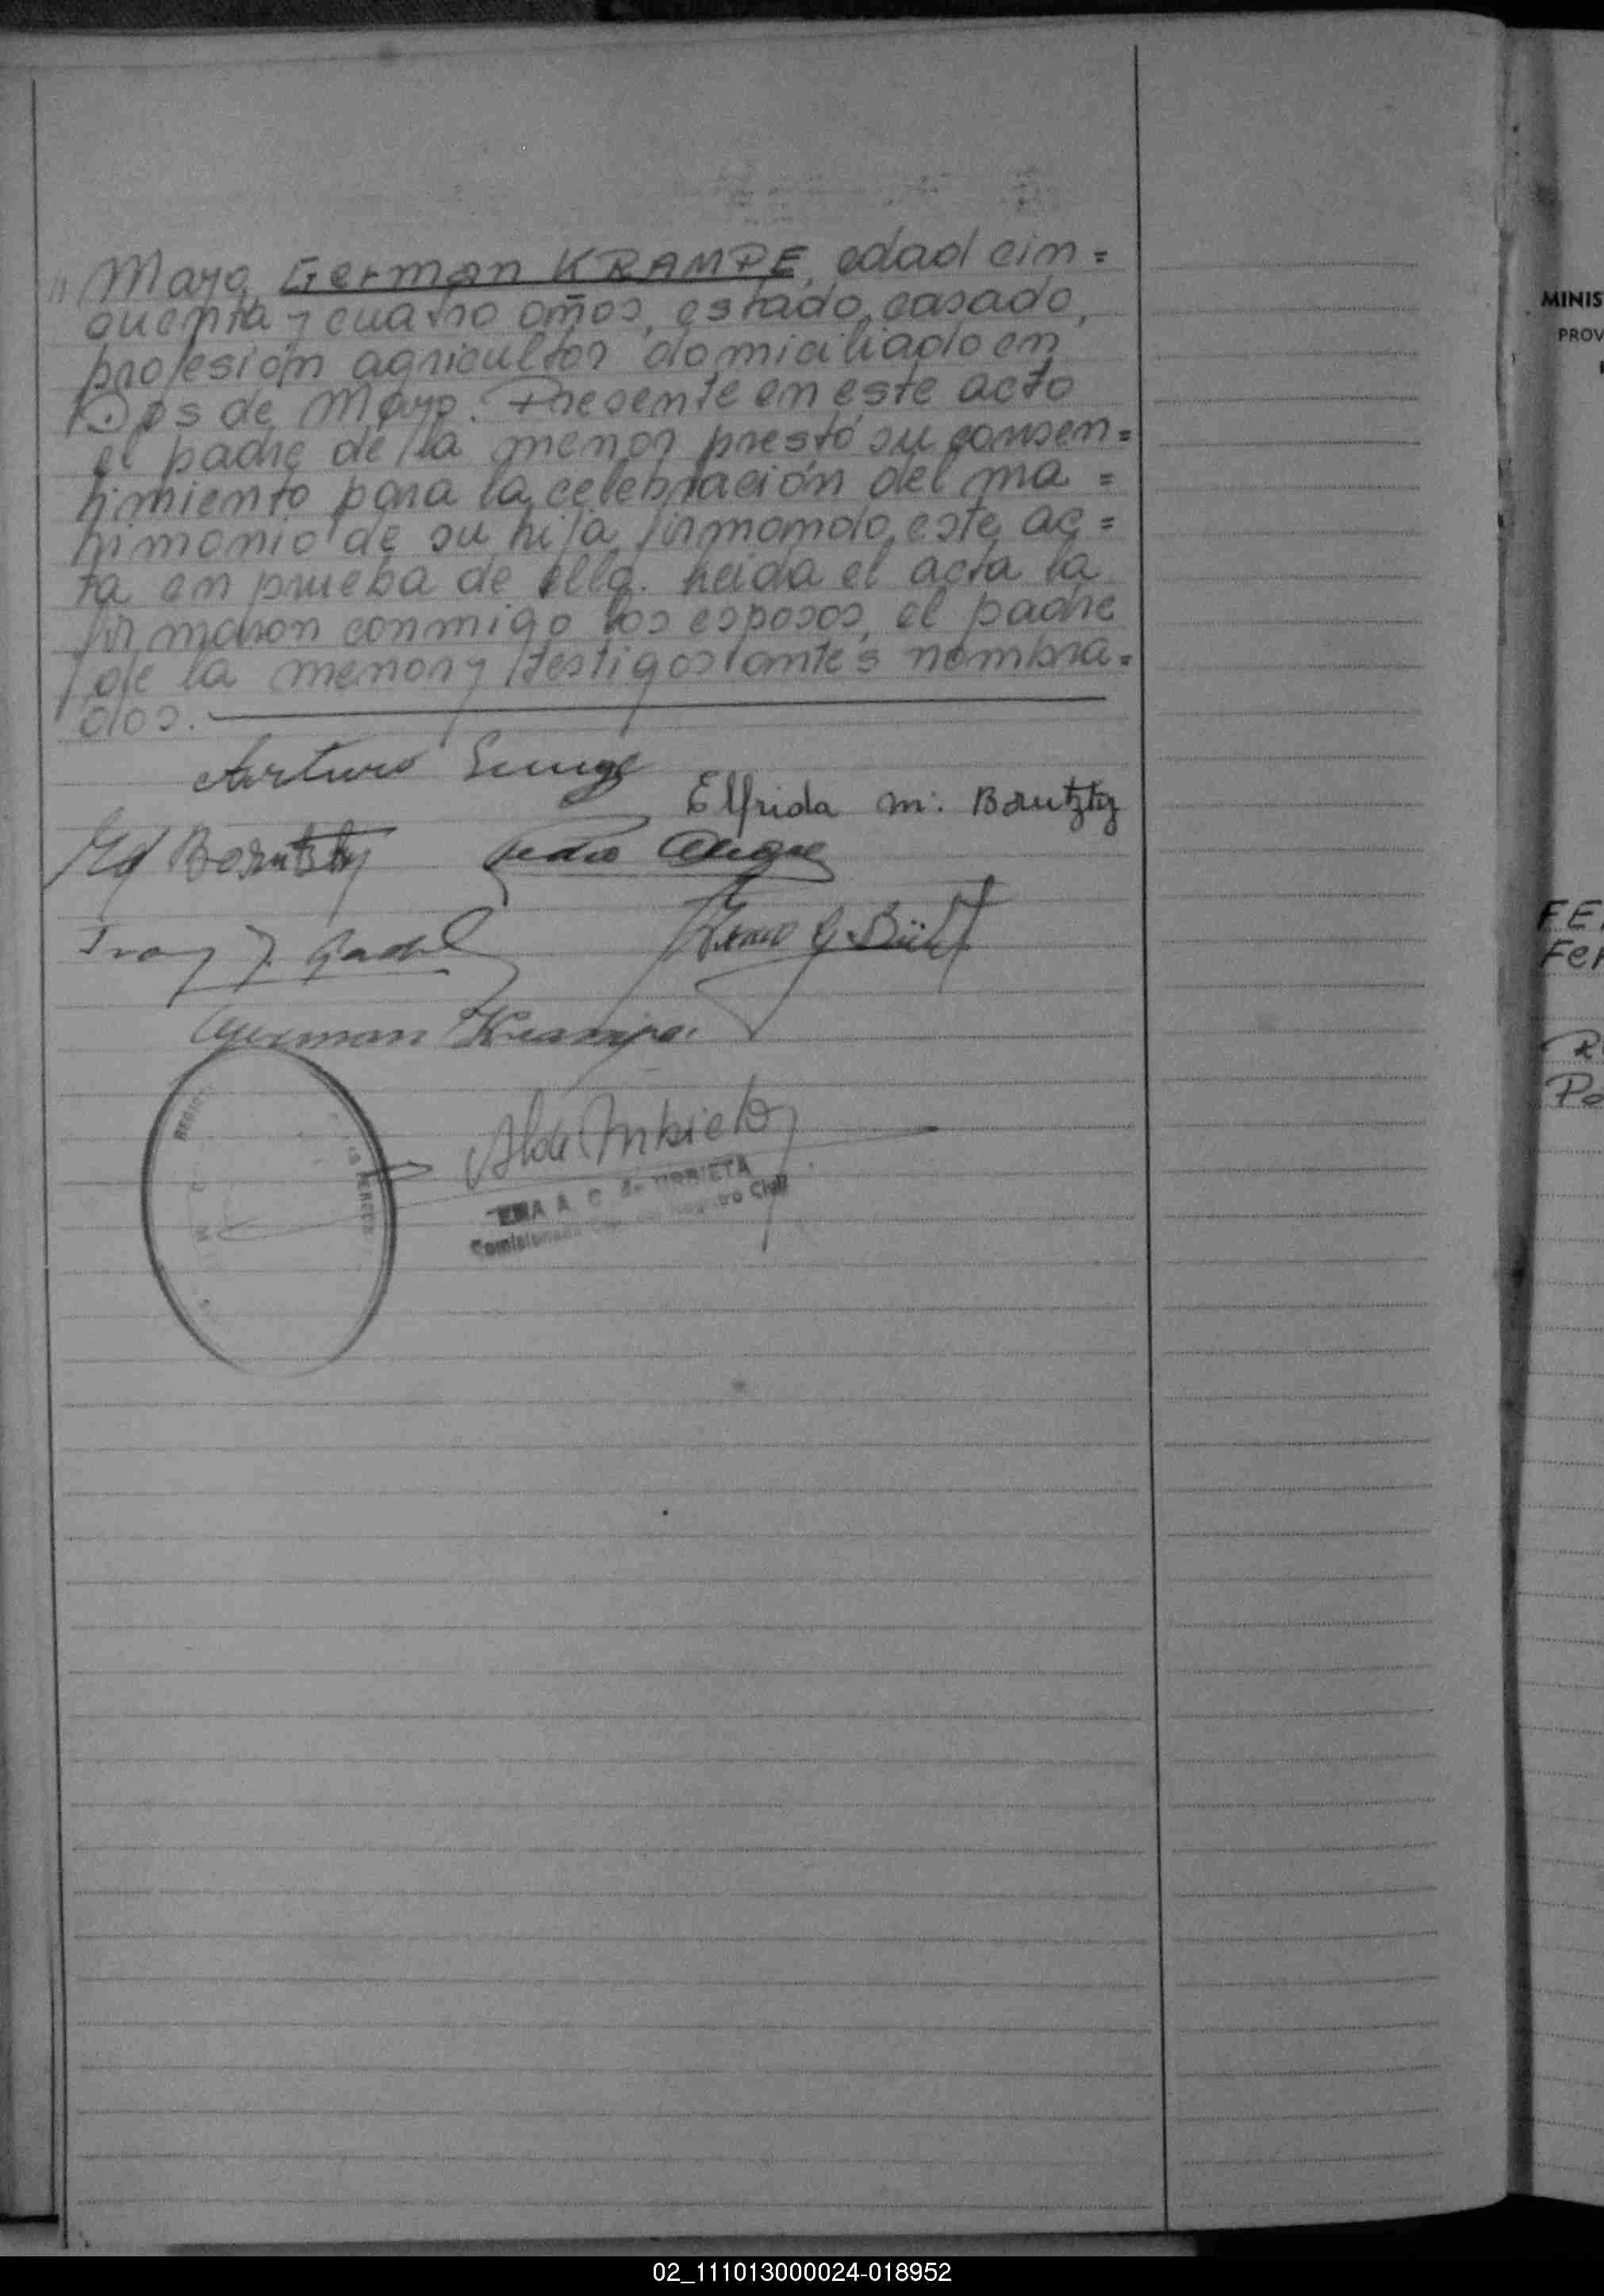 " Mayo, German KRAMPE, edad cin=
cuenta y cuatro años, estado casado,
profesión agricultor domiciliado en
Dos de Mayo. Presente en este acto
el padre de la menor prestó su consen=
timiento para la celebración del ma=
trimonio de su hija firmando este ac=
ta en prueba de ello. Leida el acta la
firmaron conmigo los esposos, el padre
de la menor y testigos antes nombra=
dos.
Arturo
Elfrida M. Brutzky
Pedro
German Krampe.
A. C. de URRIETA
Registro Civil
MINIS
PROV
FE
Fer
Pe
02_111013000024-018952